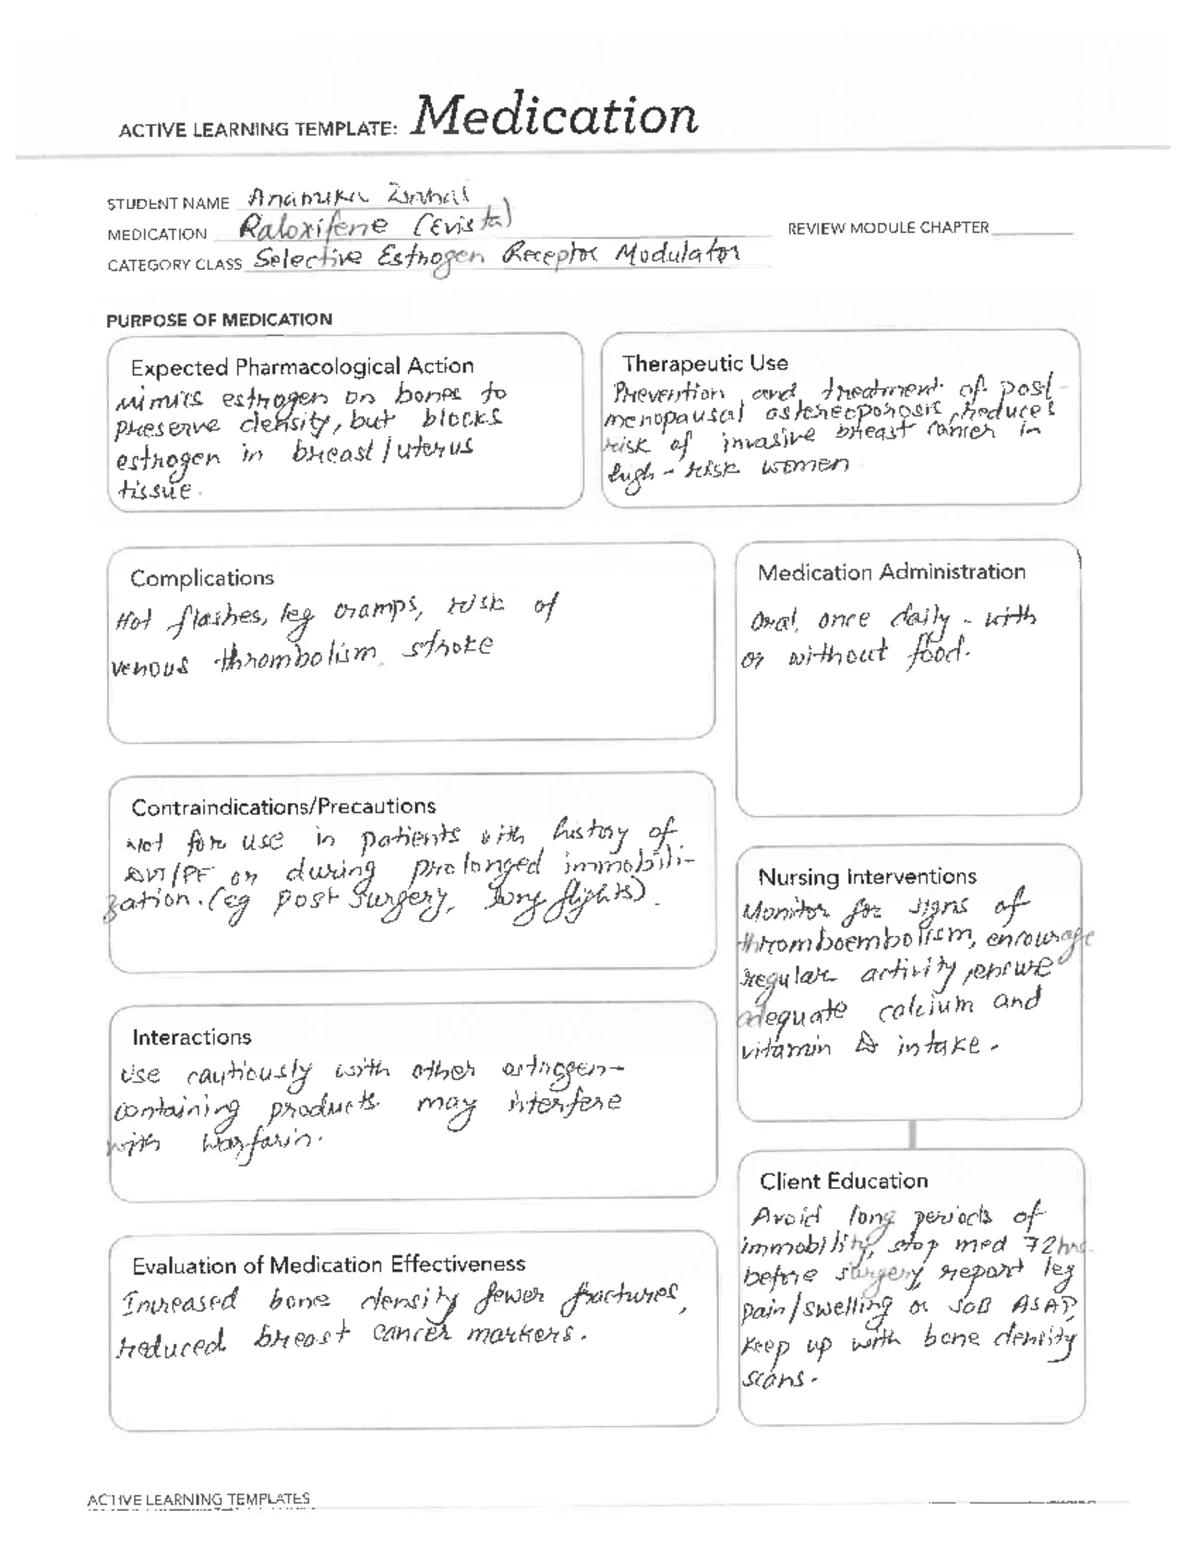 ACTIVE LEARNING TEMPLATE: Medication
STUDENT NAME
MEDICATION Raloxifene (Evista)
REVIEW MODULE CHAPTER
CATEGORY CLASS Selective Estrogen Receptor Modulator
PURPOSE OF MEDICATION
Expected Pharmacological Action
Mimics estrogen on bones to
preserve density, but blocks
estrogen in breast/uterus
tissue.
Therapeutic Use
Prevention and treatment of post-
menopausal osteoporosis, reduces
risk of invasive breast cancer in
high-risk women
Complications
Hot flashes, leg cramps, risk of
venous thrombolism, stroke
Medication Administration
Oral, once daily - with
or without food.
Contraindications/Precautions
Not for use in patients with history of
DVT/PE or during prolonged immobili-
zation. (eg post surgery, long flights).
Nursing Interventions
Monitor for signs of
thromboembolism, encourage
regular activity, ensure
adequate calcium and
vitamin D intake.
Interactions
Use cautiously with other estrogen-
containing products. may interfere
with warfarin.
Client Education
Avoid long periods of
immobility, stop med 72hrs
before surgery, report leg
pain/swelling or SOB ASAP,
keep up with bone density
scans.
Evaluation of Medication Effectiveness
Increased bone density fewer fractures,
reduced breast cancer markers.
ACTIVE LEARNING TEMPLATES